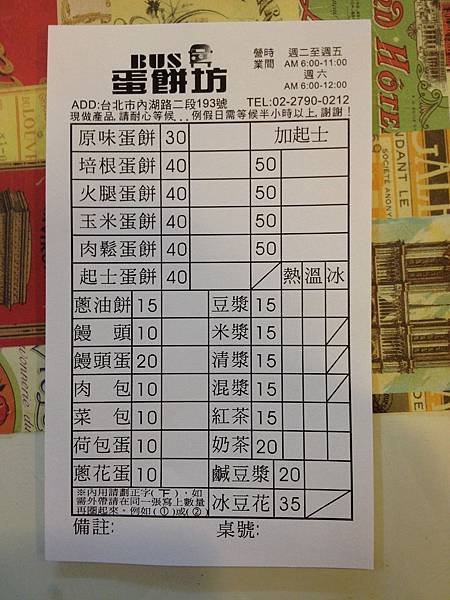 BUS
蛋餅坊
營業時間 週二至週五
AM 6:00-11:00
週六
AM 6:00-12:00
ADD:台北市內湖路二段193號 TEL:02-2790-0212
現做產品,請耐心等候...例假日需等候半小時以上,謝謝!
原味蛋餅 30 加起士
培根蛋餅 40 50
火腿蛋餅 40 50
玉米蛋餅 40 50
肉鬆蛋餅 40 50
起士蛋餅 40 熱 溫 冰
蔥油餅 15 豆漿 15
饅頭 10 米漿 15
饅頭蛋 20 清漿 15
肉包 10 混漿 15
菜包 10 紅茶 15
荷包蛋 10 奶茶 20
蔥花蛋 10 鹹豆漿 20
※內用請劃正字(下),如
需外帶請在同一張寫上數量
再圈起來,例如(①)或(②)
冰豆花 35
備註: 桌號:
HÔTEL